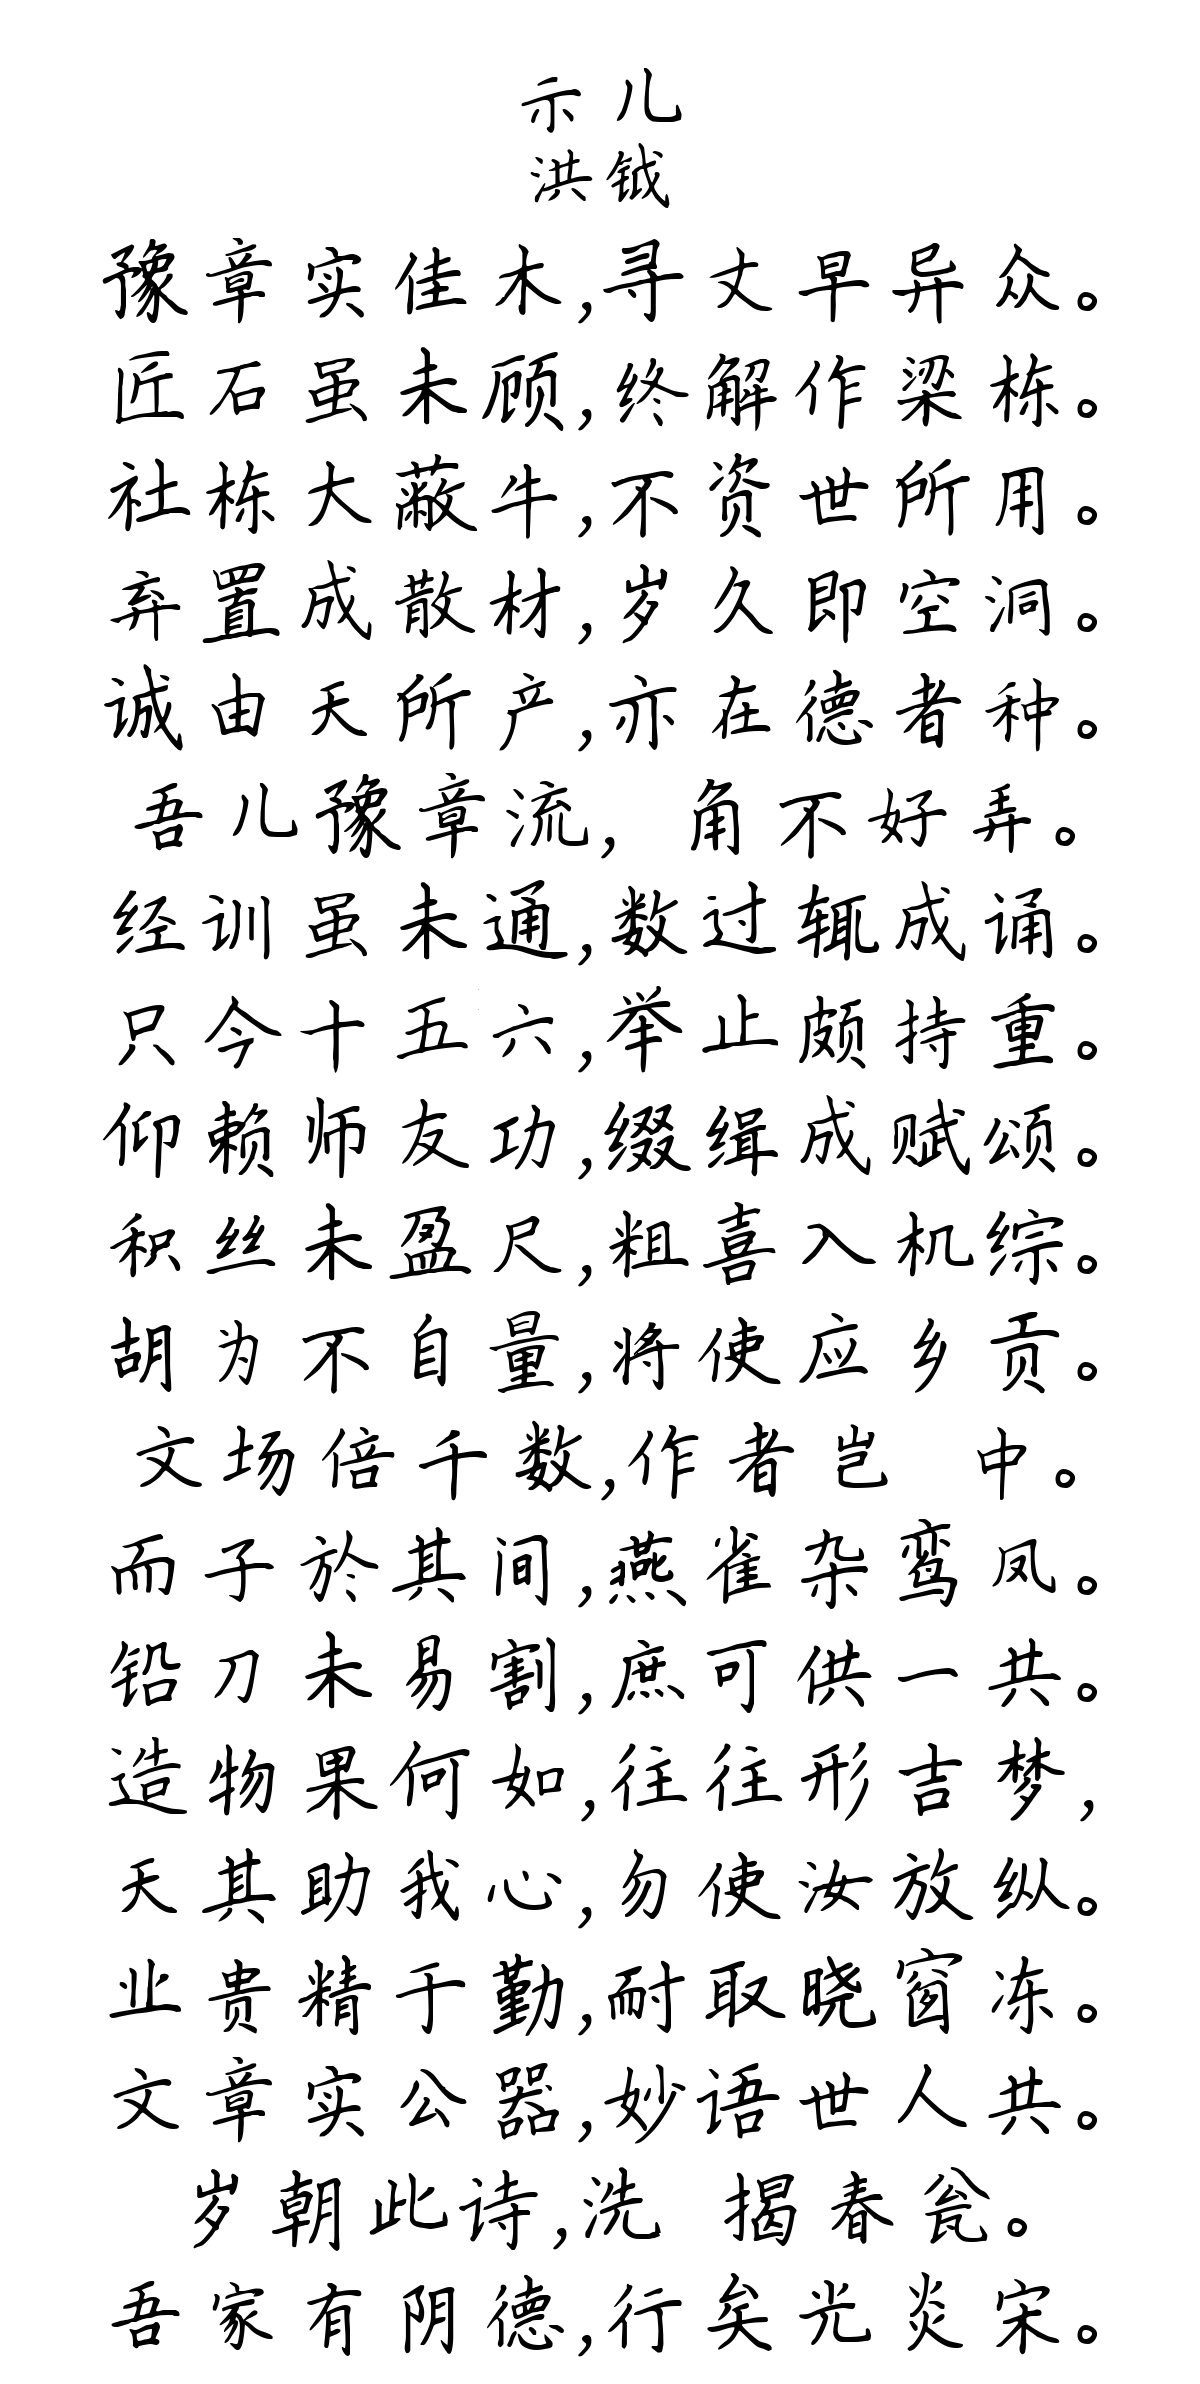 示儿
洪钺
豫章实佳木,寻丈早异众。
匠石虽未顾,终解作梁栋。
社栋大蔽牛,不资世所用。
弃置成散材,岁久即空洞。
诚由天所产,亦在德者种。
吾儿豫章流, 角不好弄。
经训虽未通,数过辄成诵。
只今十五六,举止颇持重。
仰赖师友功,缀缉成赋颂。
积丝未盈尺,粗喜入机综。
胡为不自量,将使应乡贡。
文场倍千数,作者岂 中。
而子於其间,燕雀杂鸾凤。
铅刀未易割,庶可供一共。
造物果何如,往往形吉梦,
天其助我心,勿使汝放纵。
业贵精于勤,耐取晓窗冻。
文章实公器,妙语世人共。
岁朝此诗,洗 揭春瓮。
吾家有阴德,行矣光炎宋。